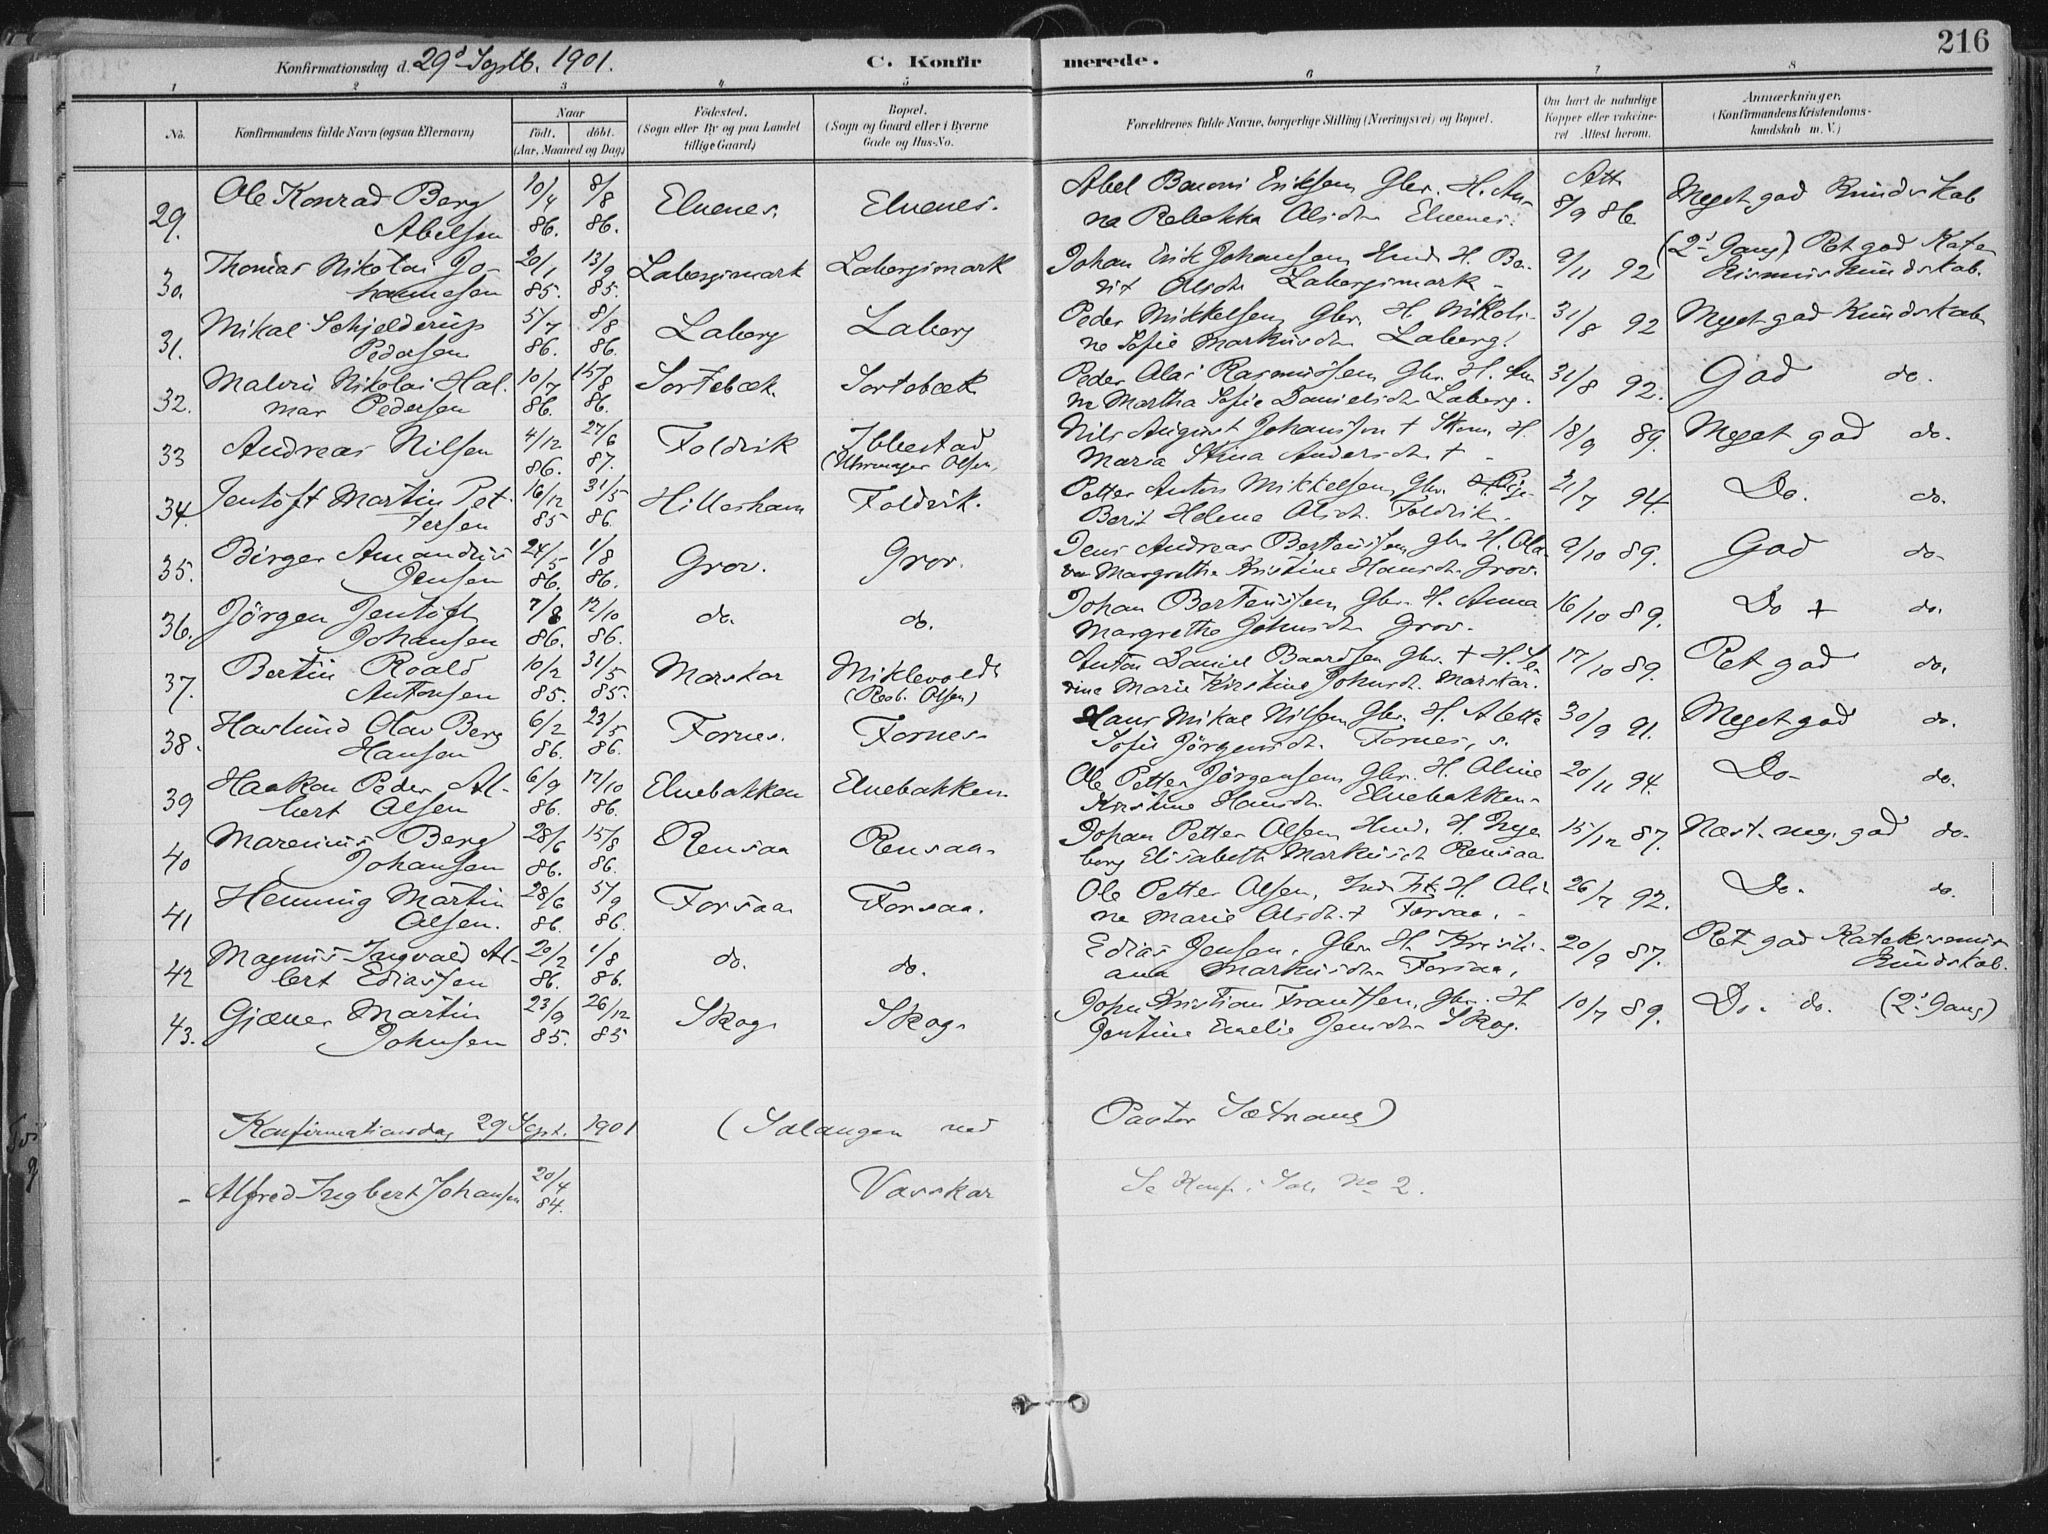 216
Konfirmationsdag d. 29d Septb. 1901.
C. Konfirmerede.
1 2 3 4 5 6 7 8
No.
Konfirmandens fulde Navn (ogsaa Efternavn)
Naar
födt. döbt.
(Aar, Maaned og Dag)
Födested.
(Sogn eller By og paa Landet
tillige Gaard)
Bopæl.
(Sogn og Gaard eller i Byerne
Gade og Hus-No.
Forældrenes fulde Navne, borgerlige Stilling (Næringsvei) og Bopæl.
Om havt de naturlige
Kopper eller vakcine-
ret Attest herom.
Anmærkninger.
(Konfirmandens Kristendoms-
kundskab m. V.)
29. Ole Konrad Berg 10/4 8/8 Elvenes. Elvenes. Abel Eriksen Gbr. H. An- Att.
Abelsen 86. 86. na Rebekka Olsdtr. Elvenes. 8/9 86. Meget god Kundskab
30. Thomas Nikolai Jo- 20/1 13/9 Labergsmark Labergsmark Johan Erik Johansen Hmd. H. Be- 9/11 92 (2d Gang) Ret god Kate-
hannesen 85. 85. rit Olsdtr. Labergsmark - kismuskundskab.
31. Mikal Schjelderup 5/7 8/8 Laberg Laberg Peder Mikkelsen Gbr. H. Nikoli- 31/8 92 Meget god Kundskab
Pedersen 86. 86. ne Sofie Markusdtr. Laberg.
32. Malvin Nikolai Hal- 10/7 15/8 Sortebæk. Sortebæk Peder Olai Rasmussen Gbr. H. An- 31/8 92. God do.
mar Pedersen 86. 86. ne Martha Sofie Danielsdtr. Laberg.
33 Andreas Nilsen 4/12 27/6 Foldvik Ibbestad Nils August Johansson + Skom. H. 18/9 89. Meget god do.
86. 87. (Uhrmager Olsen) Maria Stina Andersdtr. + -
34. Jentoft Martin Pet- 16/12 31/5 Hilleshamn Foldvik. Petter Anton Mikkelsen Gbr. 21/7 94. Do. do.
tersen 85 86. Berit Helene Olsdt. Foldvik.
35. Birger Amandus 24/5 1/8 Grov. Grov. Jens Andreas Berteussen Gbr H. Ola- 9/10 89. God do.
Jensen 86. 86. va Margrethe Kristine Hansdtr. Grov.
36. Jörgen Jentoft 7/8 12/10 do. do. Johan Berteussen Gbr. H. Anna 16/10 89. Do + do.
Johansen 86. 86. Margrethe Johnsdtr. Grov.
37. Bertin Roald 10/2 31/5 Marskar Miklevold Anton Daniel Baardsen Gbr. + H. Se- 17/10 89. Ret god do.
Antonsen 85. 85. (Reab. Olsen) rine Marie Kirstine Johnsdt. Marskar.
38. Haslund Olav Berg 6/2 23/5 Fornes. Fornes. Hans Mikal Nilsen Gbr. H. Alette 30/9 91. Meget god do.
Hansen 86. 86. Sofie Jörgensdt. Fornes, s.
39 Haakon Peder Al- 6/9 17/10 Elvebakken Elvebakken Ole Petter Jörgensen Gbr. H. Oline 20/11 94. Do. do.
bert Olsen 86. 86. Kristine Hansdtr. Elvebakken.
40 Marenius Berg 28/6 15/8 Rensaa Rensaa. Johan Petter Olsen, Hmd. H. Inge- 15/12 87. Næst. meg. god do.
Johansen 86. 86. borg Elisabeth Markusdt Rensaa
41 Henning Martin 28/6 5/9 Forsaa. Forsaa. Ole Petter Olsen, Ind. H. Oli- 26/7 92. Do. do.
Olsen. 86. 86. ne Marie Olsdtr. + Forsaa. -
42 Magnus Ingvald Al- 20/2 1/8 do. do. Edias Jensen, Gbr. H. Kristi- 20/9 87. Ret god Katekismus
bert Ediassen 86. 86. ana Markusdtr Forsaa. kundskab.
43. Gjæver Martin 23/9 26/12 Skog. Skog. John Kristian Frantsen, Gbr. H. 10/7 89. Do. do. (2d Gang)
Johnsen 85. 85 Jentine Emelie Jensdtr Skog.
Konfirmationsdag 29 Sept. 1901 (Salangen ved Pastor Sætnans)
- Alfred Ingbert Johansen 20/4 Vasskar Se Konf. i Sal. No 2.
84.